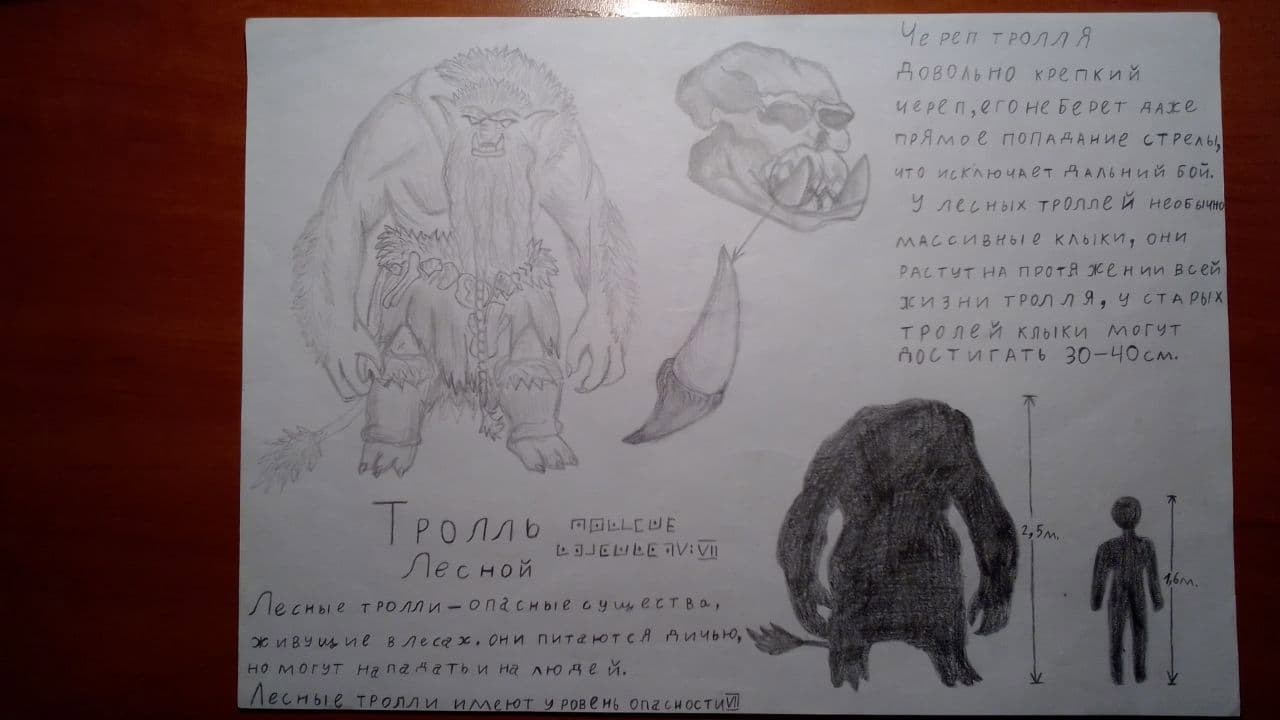 Череп тролля
довольно крепкий
череп, его не берет даже
прямое попадание стрелы,
что исключает дальний бой.
У лесных троллей необычно
массивные клыки, они
растут на протяжении всей
жизни тролля, у старых
тролей клыки могут
достигать 30-40 см.
2,5м.
1,6м.
Тролль
Лесной
V:VII
Лесные тролли - опасные существа,
живущие в лесах. они питаются дичью,
но могут нападать и на людей.
Лесные тролли имеют уровень опасности VII